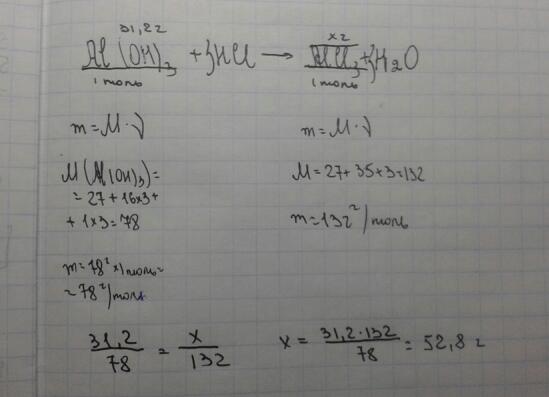 31,2г х г
Al(OH)3 + 3HCl → AlCl3 + 3H2O
1 моль 1 моль
m = M · ν m = M · ν
M(Al(OH)3) = M = 27 + 35 + 3 = 132
= 27 + 16 x 3 + m = 132 г/моль
+ 1 x 3 = 78
m = 78 г x 1 моль =
= 78 г/моль
31,2/78 = x/132 x = 31,2 · 132/78 = 52,8 г